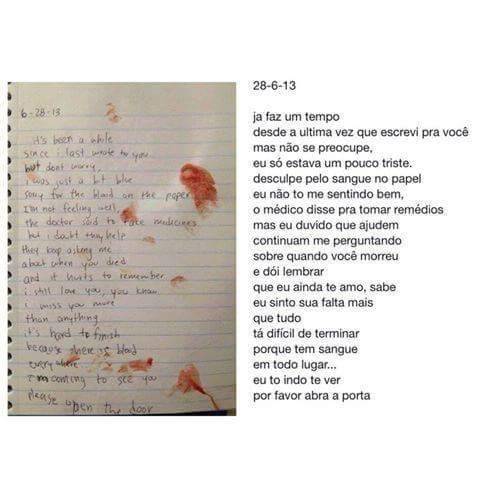 6-28-13
it's been a while
since i last wrote to you
but dont worry,
i was just a bit blue
sorry for the blood on the paper
I'm not feeling well,
the doctor said to take medicines
but i doubt they help
they keep asking me
about when you died
and it hurts to remember
i still love you, you know
i miss you more
than anything
it's hard to finish
because there is blood
everywhere
I'm coming to see you
please open the door
28-6-13
ja faz um tempo
desde a ultima vez que escrevi pra você
mas não se preocupe,
eu só estava um pouco triste.
desculpe pelo sangue no papel
eu não to me sentindo bem,
o médico disse pra tomar remédios
mas eu duvido que ajudem
continuam me perguntando
sobre quando você morreu
e dói lembrar
que eu ainda te amo, sabe
eu sinto sua falta mais
que tudo
tá difícil de terminar
porque tem sangue
em todo lugar...
eu to indo te ver
por favor abra a porta